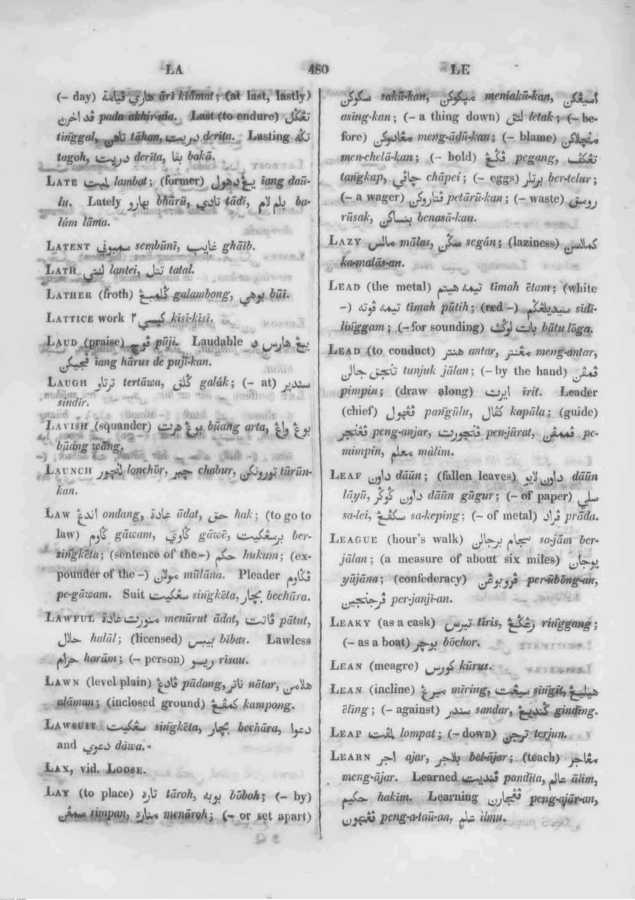 LA 480 LE
(– day) هاري قيامة āri kīāmat; (at last, lastly)
قد اخرن pada akhir-nia. Last (to endure) تڠݢل
tinggal, تاهن tāhan, دريت derita. Lasting تݢه
tagoh, دريت derīta, بقا bakā.
LATE لمبت lambat; (former) يڠ دهول iang daū-
lu. Lately بهارو bhārū, تادي tādi, بلم لام ba-
lúm lāma.
LATENT سمبوني sembūnī, غايب ghāib.
LATH لنتي lantei, تتل tatal.
LATHER (froth) ݢلمبڠ galambong, بوهي būi.
LATTICE work كيسي ٢ kisi-kisi.
LAUD (praise) ڤوجي pūji. Laudable يڠ هارس د
ڤجيكن iang hārus de puji-kan.
LAUGH ترتاو tertāwa, ݢلق galák; (– at) سندير
sindír.
LAVISH (squander) بوڠ هرت būang arta, بوڠ واڠ
būang wāng.
LAUNCH لنچور lonchōr, چبر chabur, تورونكن tūrūn-
kan.
LAW اندڠ ondang, عادة ādat, حق hak; (to go to
law) ݢاوم gāwam, ݢاوي gāwē, برسڠكيت ber-
singkēta; (sentence of the –) حكم hukum; (ex-
pounder of the –) مولان mūlāna. Pleader ڤݢاوم
pe-gāwam. Suit سڠكيت singkēta, بچار bechāra.
LAWFUL منورت عادة menūrut ādat, ڤاتت pātut,
حلال halāl; (licensed) بيبس bibas. Lawless
حرام harām; (– person) ريسو risau.
LAWN (level plain) ڤادڠ pādang, ناتر nātar, هلامن
alāman; (inclosed ground) كمڤڠ kampong.
LAWSUIT سڠكيت singkēta, بچار bechāra, دعوا
and دعوي dāwa.
LAX, vid. LOOSE.
LAY (to place) تاره tāroh, بوبه būboh; (– by)
سمڤن simpan, منارة menāroh; (– or set apart)
اسيڠكن sakū-kan, meniakū-kan,
asing-kan; (– a thing down) لتق letak; (– be-
fore) مڠادوكن meng-ādū-kan; (– blame) منچلاكن
men-chelā-kan; (– hold) ڤݢڠ pegang, تڠكڤ
tangkap, چاڤي chāpei; (– eggs) برتلر ber-telur;
(– a wager) ڤتاروكن petārū-kan; (– waste) روسق
rūsak, بناساكن benasā-kan.
LAZY مالس mālas, سݢن segán; (laziness) كمالسن
ka-malās-an.
LEAD (the metal) تيمه هيتم timah ētam; (white
–) تيمه ڤوته timah pūtih; (red –) سيديلڠݢم sidi-
linggam; (– for sounding) باتو لوݢ bātu lōga.
LEAD (to conduct) هنتر antar, مڠنتر meng-antar,
تنجق جالن tunjuk jālan; (– by the hand) ڤمڤن
pimpin; (draw along) ايرت īrit. Leader
(chief) ڤڠهولو pangūlu, كڤال kapāla; (guide)
ڤڠنجر peng-anjar, ڤنجورت pen-jūrat, ڤممڤن pe-
mimpin, معلم mālim.
LEAF داون dāūn; (fallen leaves) داون لايو dāūn
lāyū, داون ݢوݢر dāūn gūgur; (– of paper) سلي
sa-lei, سكڤڠ sa-keping; (– of metal) ڤراد prāda.
LEAGUE (hour's walk) سجام برجالن sa-jām ber-
jālan; (a measure of about six miles) يوجان
yūjāna; (confederacy) ڤربوڠن per-ūbōng-an,
ڤرجنجين per-janji-an.
LEAKY (as a cask) تيرس tiris, رڠݢڠ ringgang;
(– as a boat) بوچر bōchor.
LEAN (meagre) كورس kūrus.
LEAN (incline) ميرڠ mīring, سيڠت singit, هيليڠ
ēling; (– against) سندر sandar, ݢنديڠ ginding.
LEAP لمڤت lompat; (– down) ترجن terjun.
LEARN اجر ajar, بلاجر bel-ājar; (teach) مڠاجر
meng-ājar. Learned ڤنديت pandīta, عالم ālim,
حكيم hakim. Learning ڤڠجارن peng-ajār-an,
ڤڠتهون peng-a-taū-an, علم ilmu.